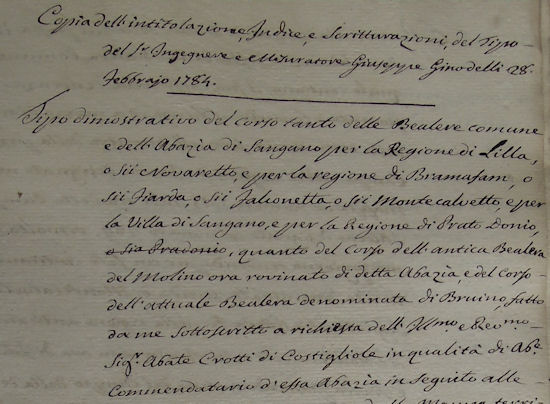 Copia dell'intitolazione, Indice, e Scritturazioni, del Tipo
del Sr. Ingegnere e Misuratore Giuseppe Ginodelli 28.
Febbrajo 1784.
Tipo dimostrativo del Corso tanto delle Bealere comune
e dell'Abazia di Sangano per la Regione di Lilla,
o sii Novaretto, e per la regione di Bramafam, o
sii Jiarda, o sii Falconetta, o sii Montecalvetto, e per
la Villa di Sangano, e per la Regione di Prato Donio,
o sia Pradonio, quanto del Corso dell'antica Bealera
del Molino ora rovinato di detta Abazia, e del Corso
dell'attuale Bealera denominata di Bruino, fatto
da me sottoscritto a richiesta dell'Illmo e Revmo.
Sigr. Abate Crotti di Costigliole in qualità di Abe.
Commendatario d'essa Abazia in seguito alle